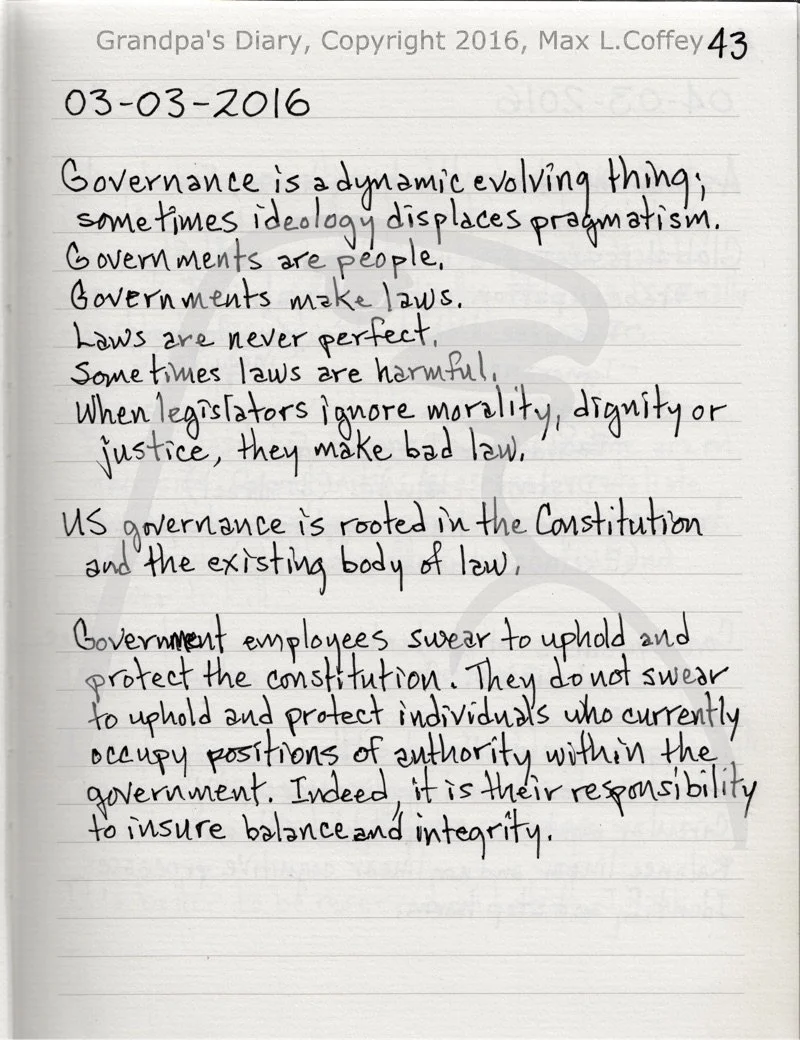 Grandpa's Diary, Copyright 2016, Max L.Coffey 43
03-03-2016
Governance is a dynamic evolving thing;
sometimes ideology displaces pragmatism.
Governments are people.
Governments make laws.
Laws are never perfect.
Sometimes laws are harmful.
When legislators ignore morality, dignity or
justice, they make bad law.
US governance is rooted in the Constitution
and the existing body of law.
Government employees swear to uphold and
protect the constitution. They do not swear
to uphold and protect individuals who currently
occupy positions of authority within the
government. Indeed, it is their responsibility
to insure balance and integrity.